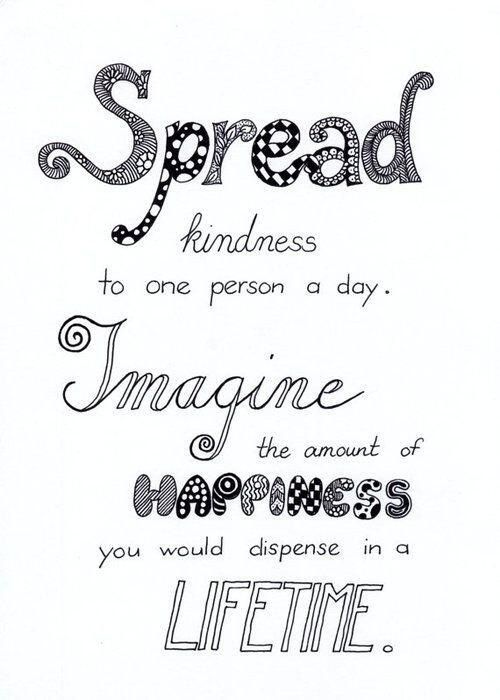 Spread
kindness
to one person a day.
Imagine
the amount of
HAPPINESS
you would dispense in a
LIFETIME.